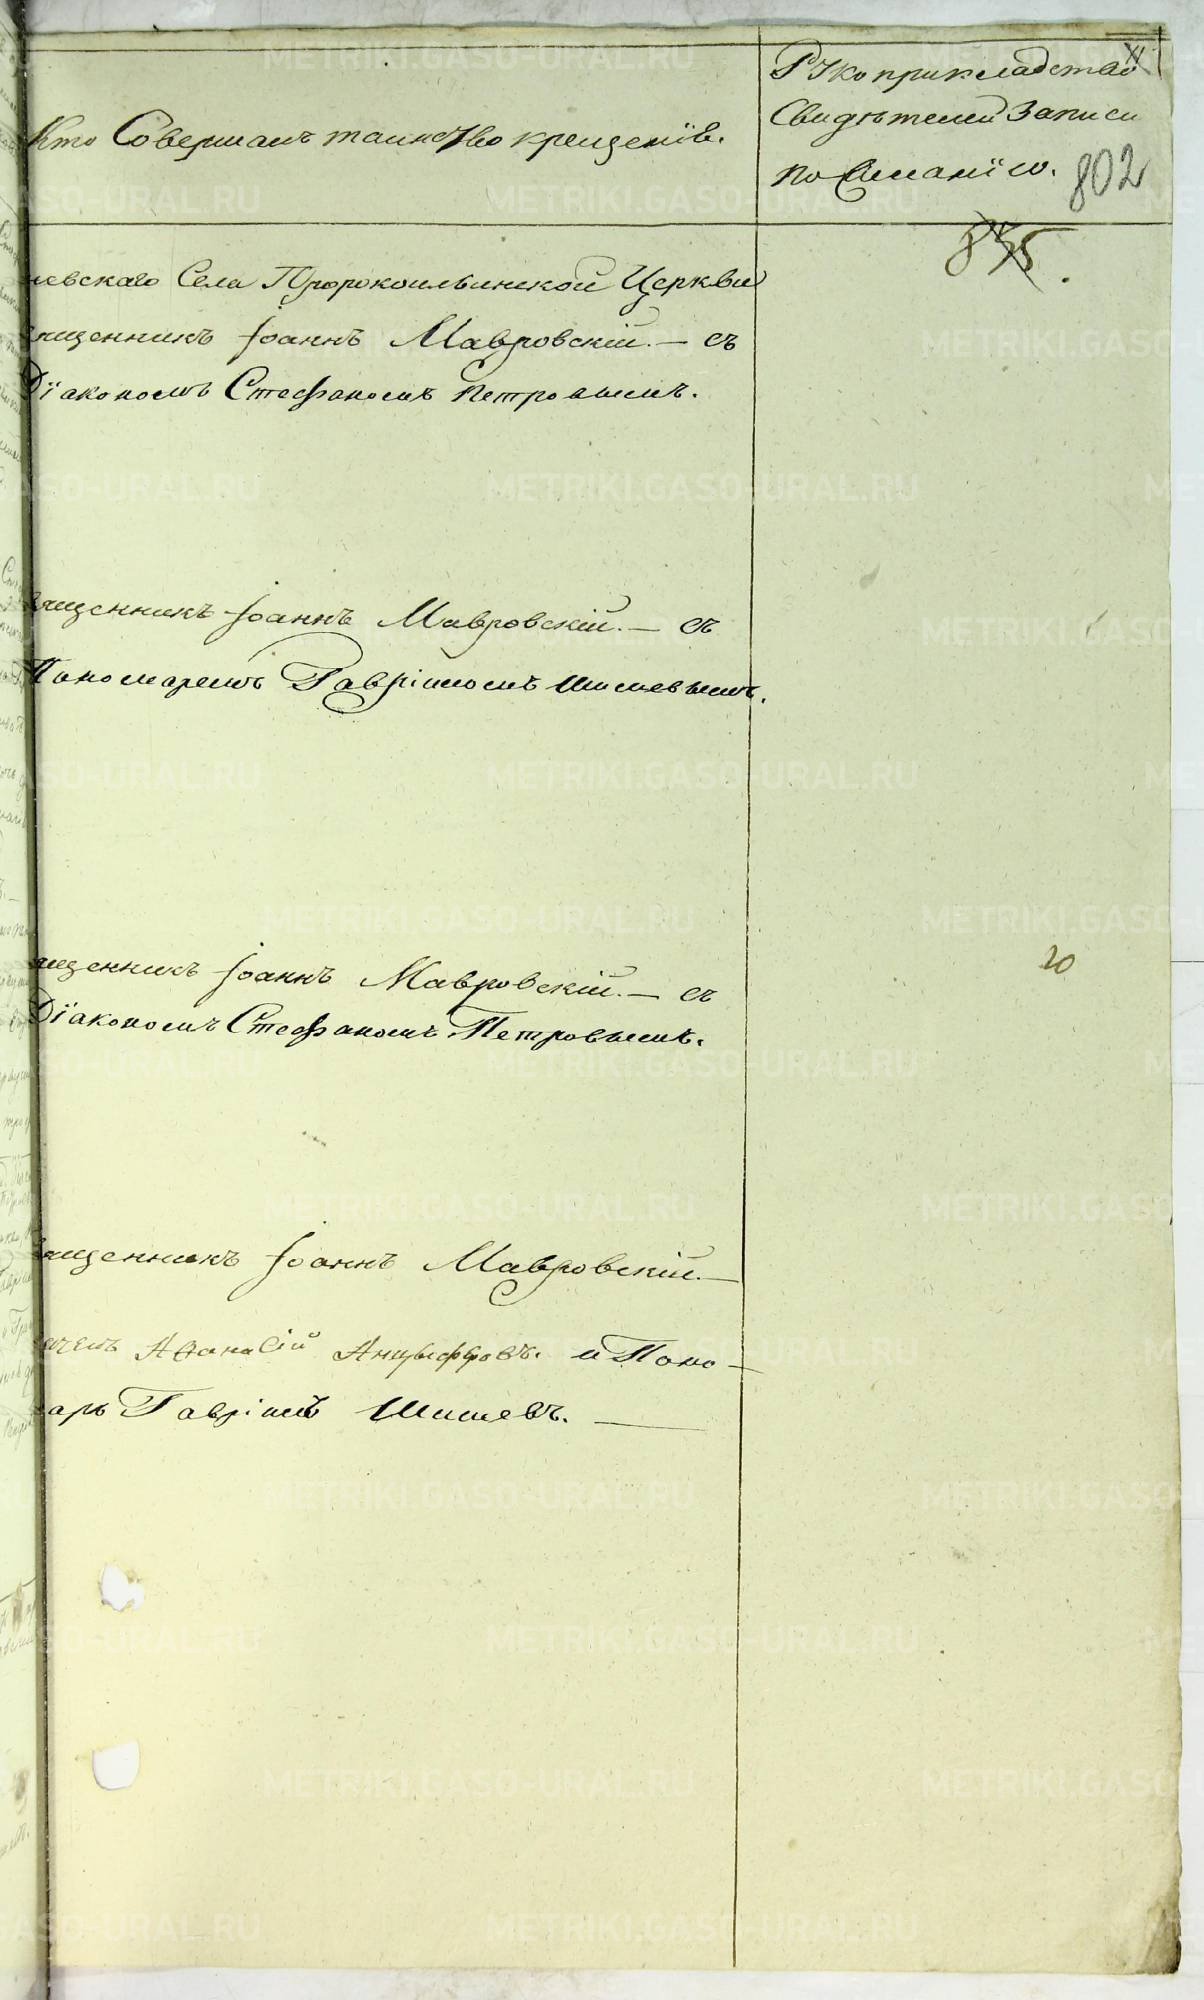 Кто Совершалъ таинство крещенїя.
Рукоприкладство
Свидѣтелей Записи
по желанїю.
802
835.
невскаго Села Пророкоильинской Церкви
священникъ Іоаннъ Мавровскій. — съ
Дїакономъ Стефаномъ Петровымъ.
Священникъ Іоаннъ Мавровскій. — съ
Пономаремъ Гавріиломъ Шишевымъ.
священникъ Іоаннъ Мавровскій. — съ
Дїакономъ Стефаномъ Петровымъ.
20
Священникъ Іоаннъ Мавровскій. —
Аѳанасій Анцыферовъ. и Поно-
марь Гавріилъ Шишевъ. —
METRIKI.GASO-URAL.RU